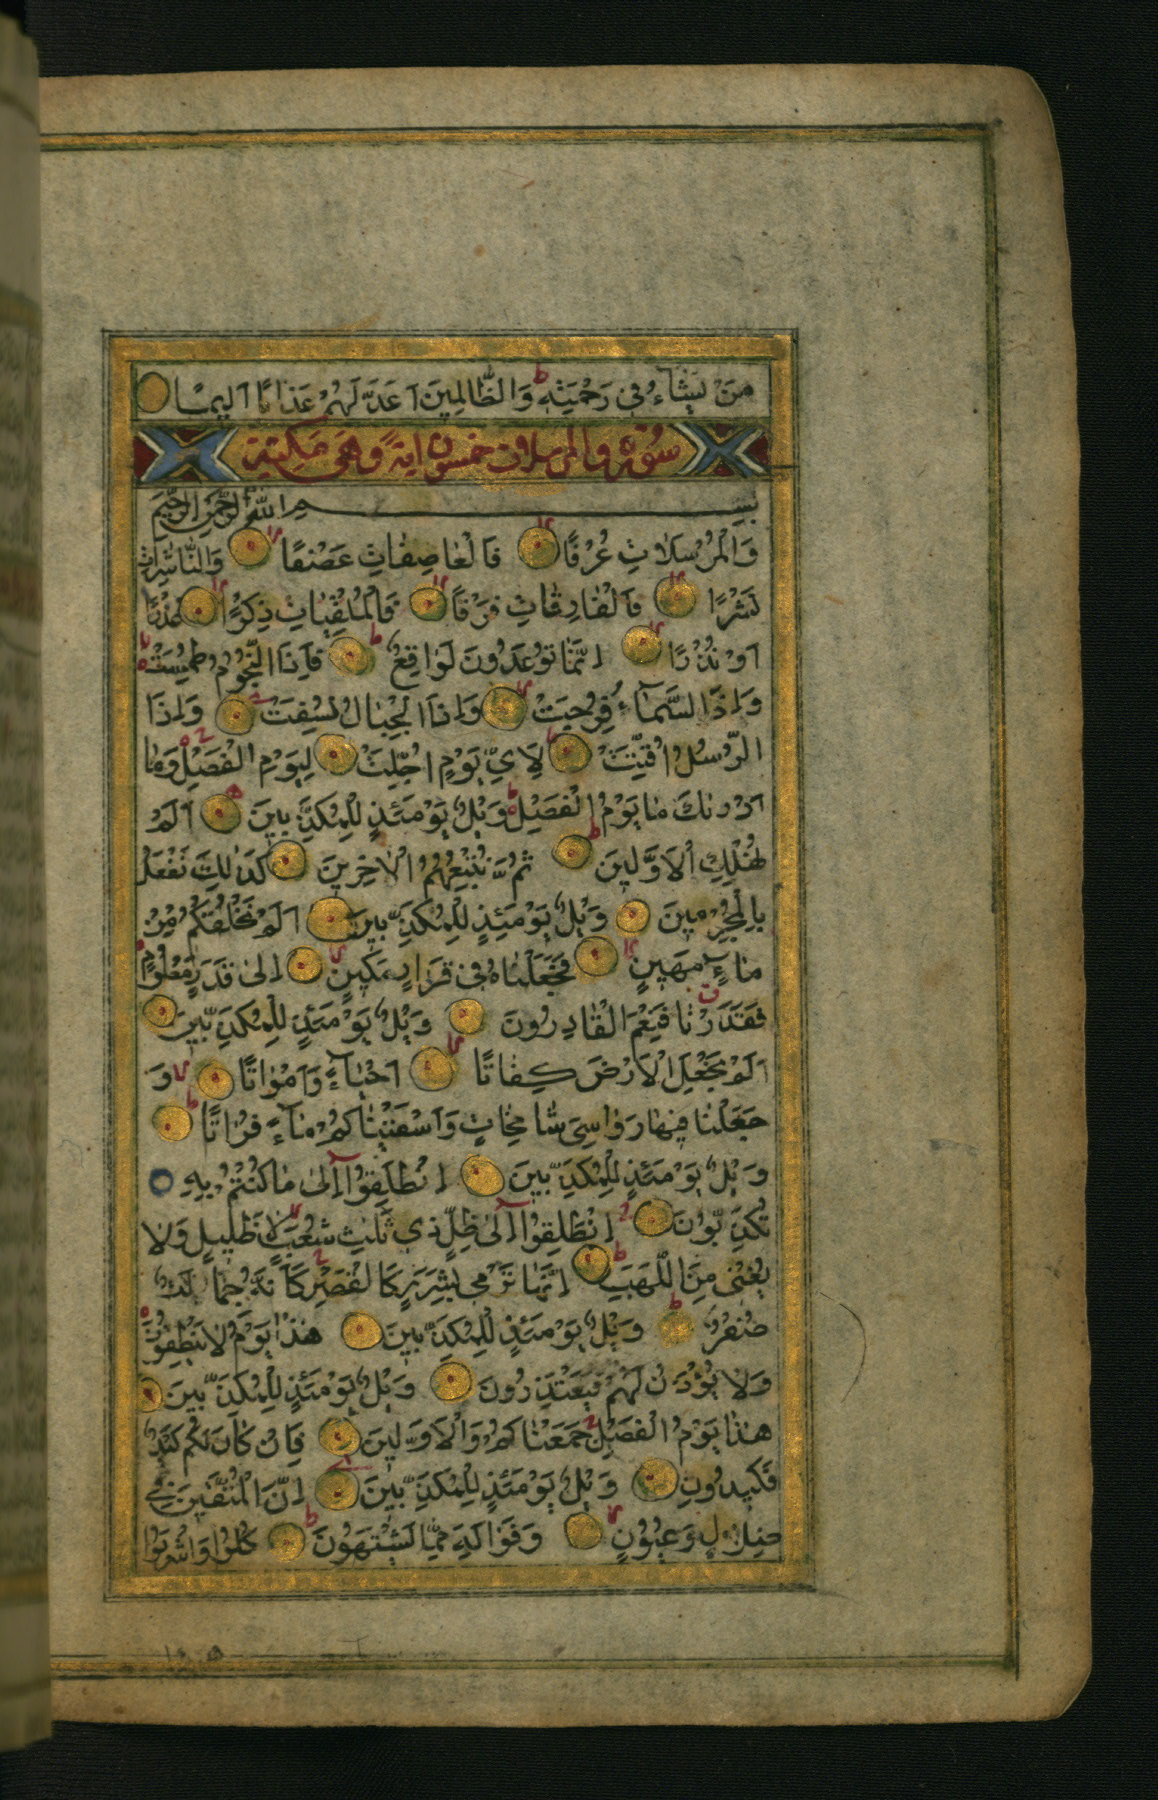 مَنْ يَشَاءُ فِي رَحْمَتِهِ ط وَالظَّالِمِينَ اَعَدَّ لَهُمْ عَذَابًا اَلِيمًا
سورة والمرسلات خمسون اية وهى مكية
بِسْمِ اللّٰهِ الرَّحْمٰنِ الرَّحِيمِ
وَالْمُرْسَلَاتِ عُرْفًا لا فَالْعَاصِفَاتِ عَصْفًا لا وَالنَّاشِرَاتِ
نَشْرًا لا فَالْفَارِقَاتِ فَرْقًا لا فَالْمُلْقِيَاتِ ذِكْرًا لا عُذْرًا
اَوْ نُذْرًا لا اِنَّمَا تُوعَدُونَ لَوَاقِعٌ ط فَاِذَا النُّجُومُ طُمِسَتْ لا
وَاِذَا السَّمَاءُ فُرِجَتْ لا وَاِذَا الْجِبَالُ نُسِفَتْ لا وَاِذَا
الرُّسُلُ اُقِّتَتْ ط لِاَيِّ يَوْمٍ اُجِّلَتْ لِيَوْمِ الْفَصْلِ ج وَمَا
اَدْرٰىكَ مَا يَوْمُ الْفَصْلِ ط وَيْلٌ يَوْمَئِذٍ لِلْمُكَذِّبِينَ اَلَمْ
نُهْلِكِ الْاَوَّلِينَ ط ثُمَّ نُتْبِعُهُمُ الْاٰخِرِينَ كَذٰلِكَ نَفْعَلُ
بِالْمُجْرِمِينَ وَيْلٌ يَوْمَئِذٍ لِلْمُكَذِّبِينَ اَلَمْ نَخْلُقْكُمْ مِنْ
مَاءٍ مَهِينٍ لا فَجَعَلْنَاهُ فِي قَرَارٍ مَكِينٍ لا اِلٰى قَدَرٍ مَعْلُومٍ
فَقَدَرْنَا ق فَنِعْمَ الْقَادِرُونَ وَيْلٌ يَوْمَئِذٍ لِلْمُكَذِّبِينَ
اَلَمْ نَجْعَلِ الْاَرْضَ كِفَاتًا لا اَحْيَاءً وَاَمْوَاتًا لا وَ
جَعَلْنَا فِيهَا رَوَاسِيَ شَامِخَاتٍ وَاَسْقَيْنَاكُمْ مَاءً فُرَاتًا ط
وَيْلٌ يَوْمَئِذٍ لِلْمُكَذِّبِينَ اِنْطَلِقُوا اِلٰى مَا كُنْتُمْ بِهِ
تُكَذِّبُونَ ج اِنْطَلِقُوا اِلٰى ظِلٍّ ذِي ثَلٰثِ شُعَبٍ لا لَا ظَلِيلٍ وَلَا
يُغْنِى مِنَ اللَّهَبِ ط اِنَّهَا تَرْمِى بِشَرَرٍ كَالْقَصْرِ ج كَاَنَّهُ جِمَالَتٌ
صُفْرٌ ط وَيْلٌ يَوْمَئِذٍ لِلْمُكَذِّبِينَ هٰذَا يَوْمُ لَا يَنْطِقُونَ
وَلَا يُؤْذَنُ لَهُمْ فَيَعْتَذِرُونَ وَيْلٌ يَوْمَئِذٍ لِلْمُكَذِّبِينَ
هٰذَا يَوْمُ الْفَصْلِ ج جَمَعْنَاكُمْ وَالْاَوَّلِينَ فَاِنْ كَانَ لَكُمْ كَيْدٌ
فَكِيدُونِ وَيْلٌ يَوْمَئِذٍ لِلْمُكَذِّبِينَ اِنَّ الْمُتَّقِينَ فِي
ظِلَالٍ وَعُيُونٍ لا وَفَوَاكِهَ مِمَّا يَشْتَهُونَ ط كُلُوا وَاشْرَبُوا